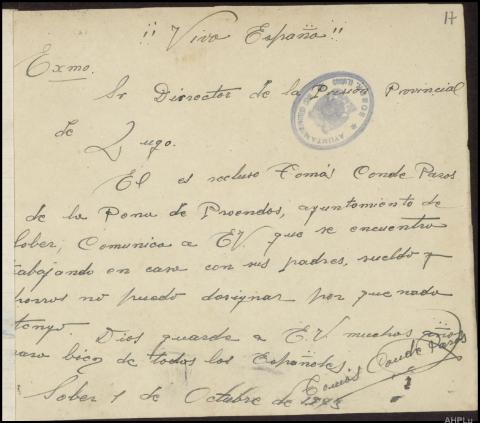 17
¡¡Viva España!!
Exmo.
Sr Dirrector de la Prision Provincial
de Lugo.
El es recluso Tomás Conde Pazos
de la Pena de Proendos, ayuntamiento de
Sober, Comunica a E.V. que se encuentra
abajando en casa con sus padres, sueldo y
horros no puedo dosignar por que nada
tengo. Dios guarde a E.V. muchos años
para bien de todos los Españoles.
Sober 1 de Octubre de
Tomás Conde Pazos
AYUNTAMIENTO
AHPLu